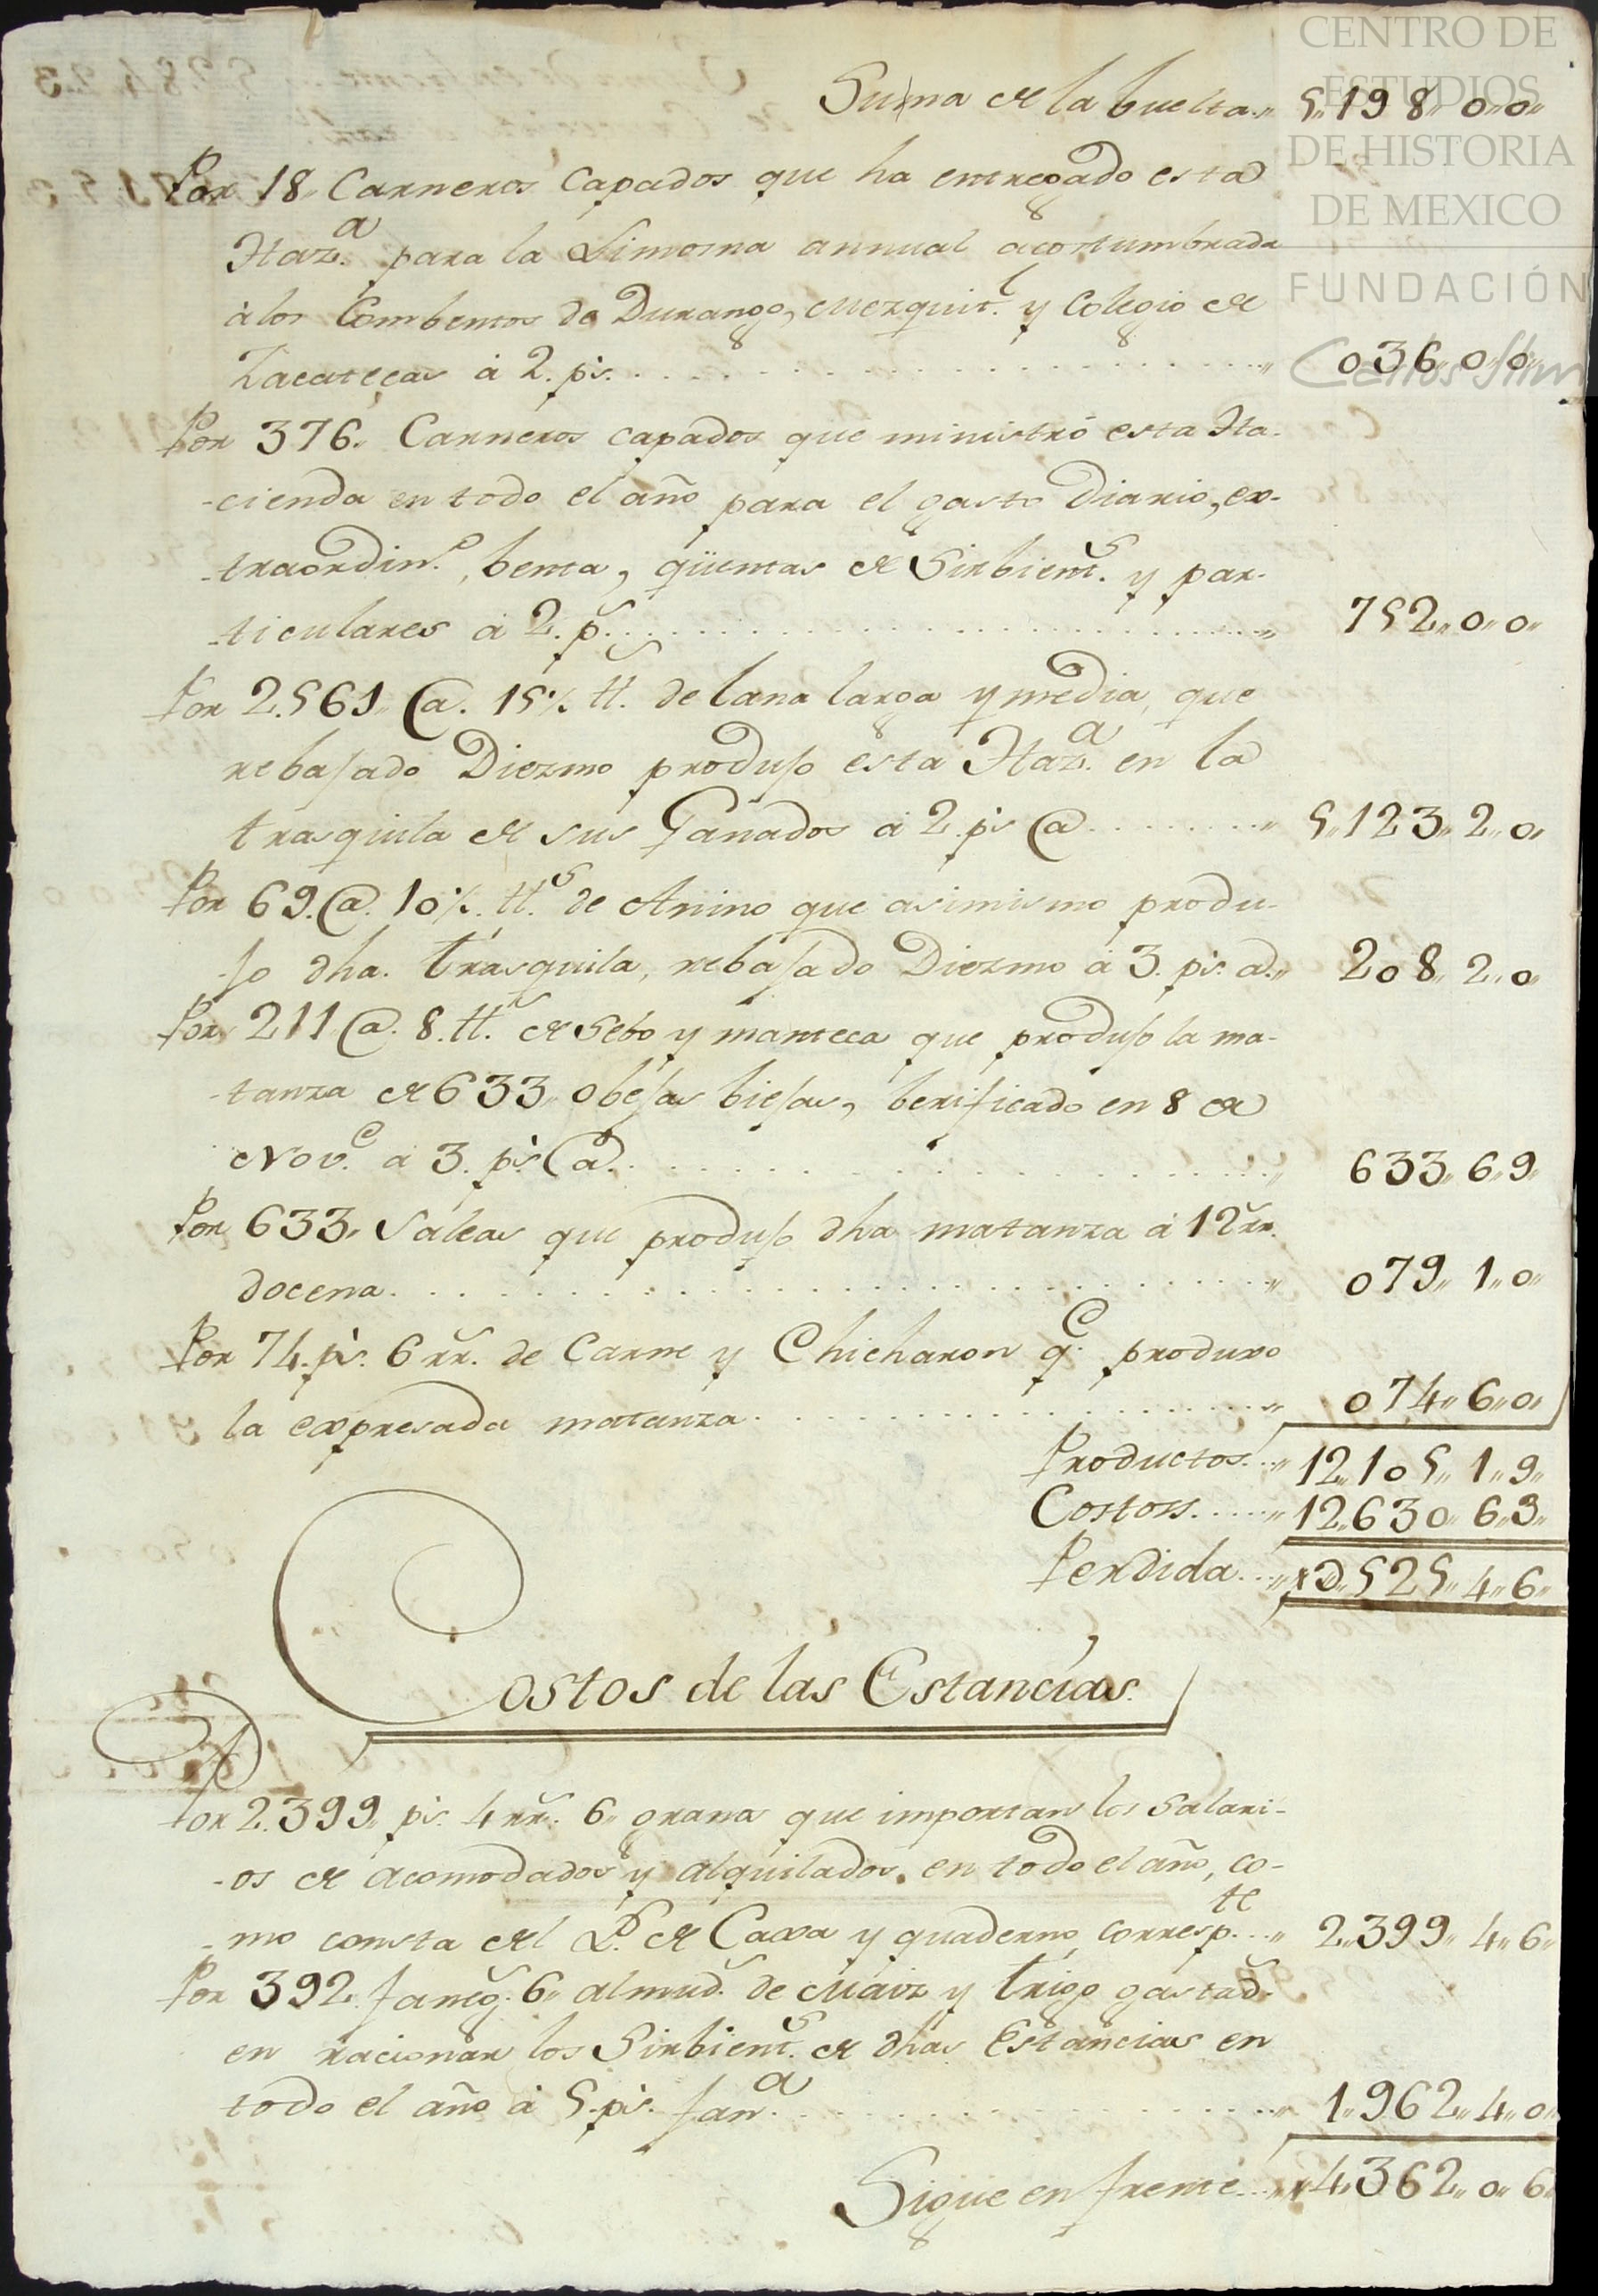 CENTRO DE
ESTUDIOS
DE HISTORIA
DE MEXICO
FUNDACIÓN
Carlos Slim
Suma de la buelta.. 5,,198,,0,,0,,
Por 18,, Carneros Capados que ha entregado esta
Haz.a para la Limosna annual acostumbrada
à los Combentos de Durango, Mezquit.l y Colegio de
Zacatecas à 2. p.s . . . . . . . . . . . . 036,,0,,0,,
Por 376,, Carneros capados que ministró esta Ha-
-cienda en todo el año para el gasto Diario, ex-
-traordin.o, benta, qüentas de Sirbient.s y par-
-ticulares à 2. p.s . . . . . . . . . . . . 752,,0,,0,,
Por 2.561,, @. 15½ ℔. de lana larga y media, que
rebajado Diezmo produjo esta Haz.a en la
trasquila de sus Ganados à 2. p.s @ . . . . . . 5,,123,,2,,0,,
Por 69. @. 10½. ℔.s de Anino que asimismo produ-
-jo dha. trasquila, rebajado Diezmo à 3. p.s @.,, 208,,2,,0
Por 211 @. 8. ℔.s de Sebo y manteca que produjo la ma-
-tanza de 633,, obejas biejas, berificado en 8 de
Nov.e à 3. p.s @. . . . . . . . . . . . 633,,6,,9,,
Por 633,, Saleas que produjo dha matanza à 12 rr.s
docena. . . . . . . . . . . . . . 079,,1,,0,,
Por 74. p.s 6 rr.s de Carne y Chicharon q.e produxo
la expresada matanza. . . . . . . . . . 074,,6,,0,,
Productos. . ,, 12,,105,,1,,9,,
Costoss. . . . . ,, 12,,630,,6,,3,,
Perdida. . . ,, D,,525,,4,,6,,
Costos de las Estancias.
Por 2.399,, p.s 4 rr.s 6,, granos que importan los Salari-
-os de acomodados y alquilados, en todo el año, co-
-mo consta del L.o de Caxa y quaderno corresp.te . . ,, 2,,399,,4,,6,,
Por 392,, faneg.s 6,, almud.s de Maiz y trigo gastad.s
en racionar los Sirbient.s de dhas Estancias en
todo el año à 5. p.s fan.a . . . . . . . . . . 1,,962,,4,,0,,
Sigue en frente. . . ,, 4,,362,,0,,6,,